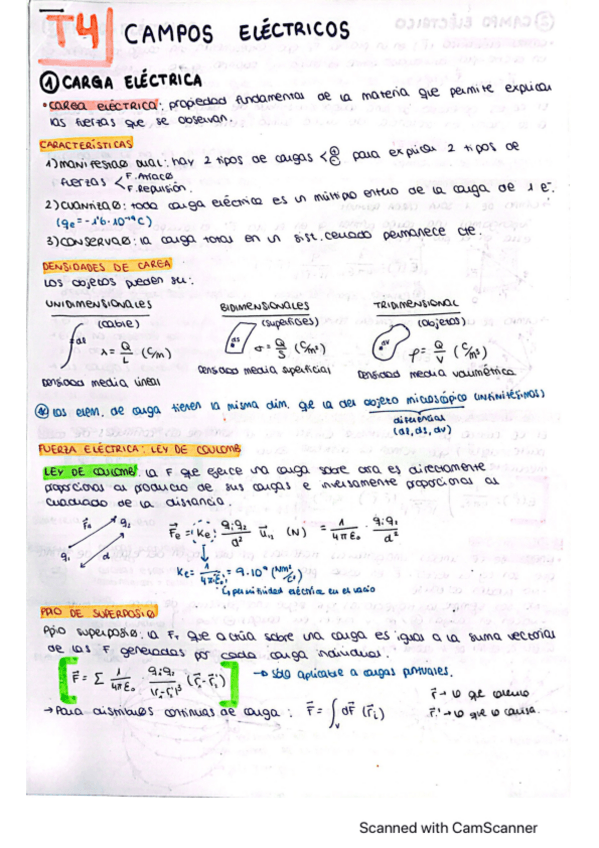 T4 CAMPOS ELÉCTRICOS
① CARGA ELÉCTRICA
• CARGA ELÉCTRICA: propiedad fundamental de la materia que permite explicar
las fuerzas que se observan.
CARACTERÍSTICAS
1) MANIFESTAO DUAL: hay 2 tipos de cargas < ⊕ ⊖ para explicar 2 tipos de
fuerzas < F. Atraco F. Repulsión.
2) CUANTIZAO: toda carga eléctrica es un múltiplo entero de la carga de 1 e⁻.
(qe = -1'6·10⁻¹⁹ C)
3) CONSERVAO: la carga total en un sist. cerrado permanece cte.
DENSIDADES DE CARGA
Los objetos pueden ser:
UNIDIMENSIONALES BIDIMENSIONALES TRIDIMENSIONAL
(cable) (superficies) (objetos)
dl λ = Q/L (C/m) ds σ = Q/S (C/m²) dv ρ = Q/V (C/m³)
Densidad media lineal Densidad media superficial Densidad media volumétrica
los elem. de carga tienen la misma dim. qe la del objeto microscópico (infinitésimos)
diferencial
(dl, ds, dv)
FUERZA ELÉCTRICA: LEY DE COULOMB
LEY DE COULOMB: la F que ejerce una carga sobre otra es directamente
proporcional al producto de sus cargas e inversamente proporcional al
cuadrado de la distancia.
F⃗e = Ke · q₁q₂/d² u⃗₁₂ (N) = 1/4πε₀ · q₁q₂/d²
q₁ d q₂
Ke = 1/4πε₀ = 9·10⁹ (Nm²/C²)
↳ permitividad eléctrica en el vacío
PPIO DE SUPERPOSIO
Ppio superposio: la F_T que actúa sobre una carga es igual a la suma vectorial
de las F generadas por cada carga individual.
[F⃗ = Σ 1/4πε₀ · q₁q₂/|r⃗-r⃗ᵢ'|³ (r⃗-r⃗ᵢ')] → sólo aplicable a cargas puntuales.
→ Para distribuios continuas de carga: F⃗ = ∫v dF⃗ (r⃗ᵢ)
r⃗ → lo qe
r⃗' → lo que lo causa.
Scanned with CamScanner